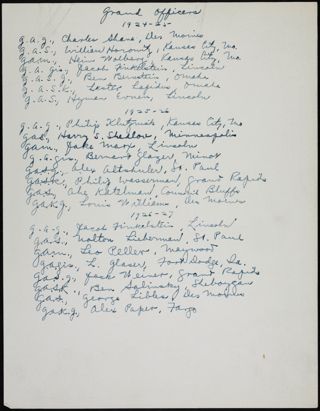 Grand Officers
1924-25
G.A.G., Charles Shane, Des Moines
G.A.S., William Horowitz, Kansas City, Mo.
G.A.M., Hein Wolberg, Kansas City, Mo
G.A. Giz., Jacob Finkelstein, Lincoln
G.A.S.G., Ben Bernstein, Omaha
G.A.S.K., Lester Lapidus, Omaha
G.A.S., Hyman Evnen, Lincoln
1925-26
G.A.G., Philip Klutznick, Kansas City, Mo
GAS, Harry S. Shedlov, Minneapolis
GAM, Jake Marx, Lincoln
G.A.Giz, Bernard Glazer, Minot
GASG, Alex Altshuler, St. Paul
GASK, Philip Wasserman, Grand Rapids
GAS, Abe Katelman, Council Bluffs
GAKG, Louis Williams, Des Moines
1926-27
G.A.G., Jacob Finkelstein, Lincoln
GAS, Nolton Lieberman, St. Paul
GAM., Leo Peller, Maywood
GAGiz, L. Glaser, Fort Dodge, Ia.
GASG, Jack Weiner, Grand Rapids
GASK, Ben Salinsky, Sheboygan
GAS, George Libbes, Des Moines
GAKG, Alex Paper, Fargo